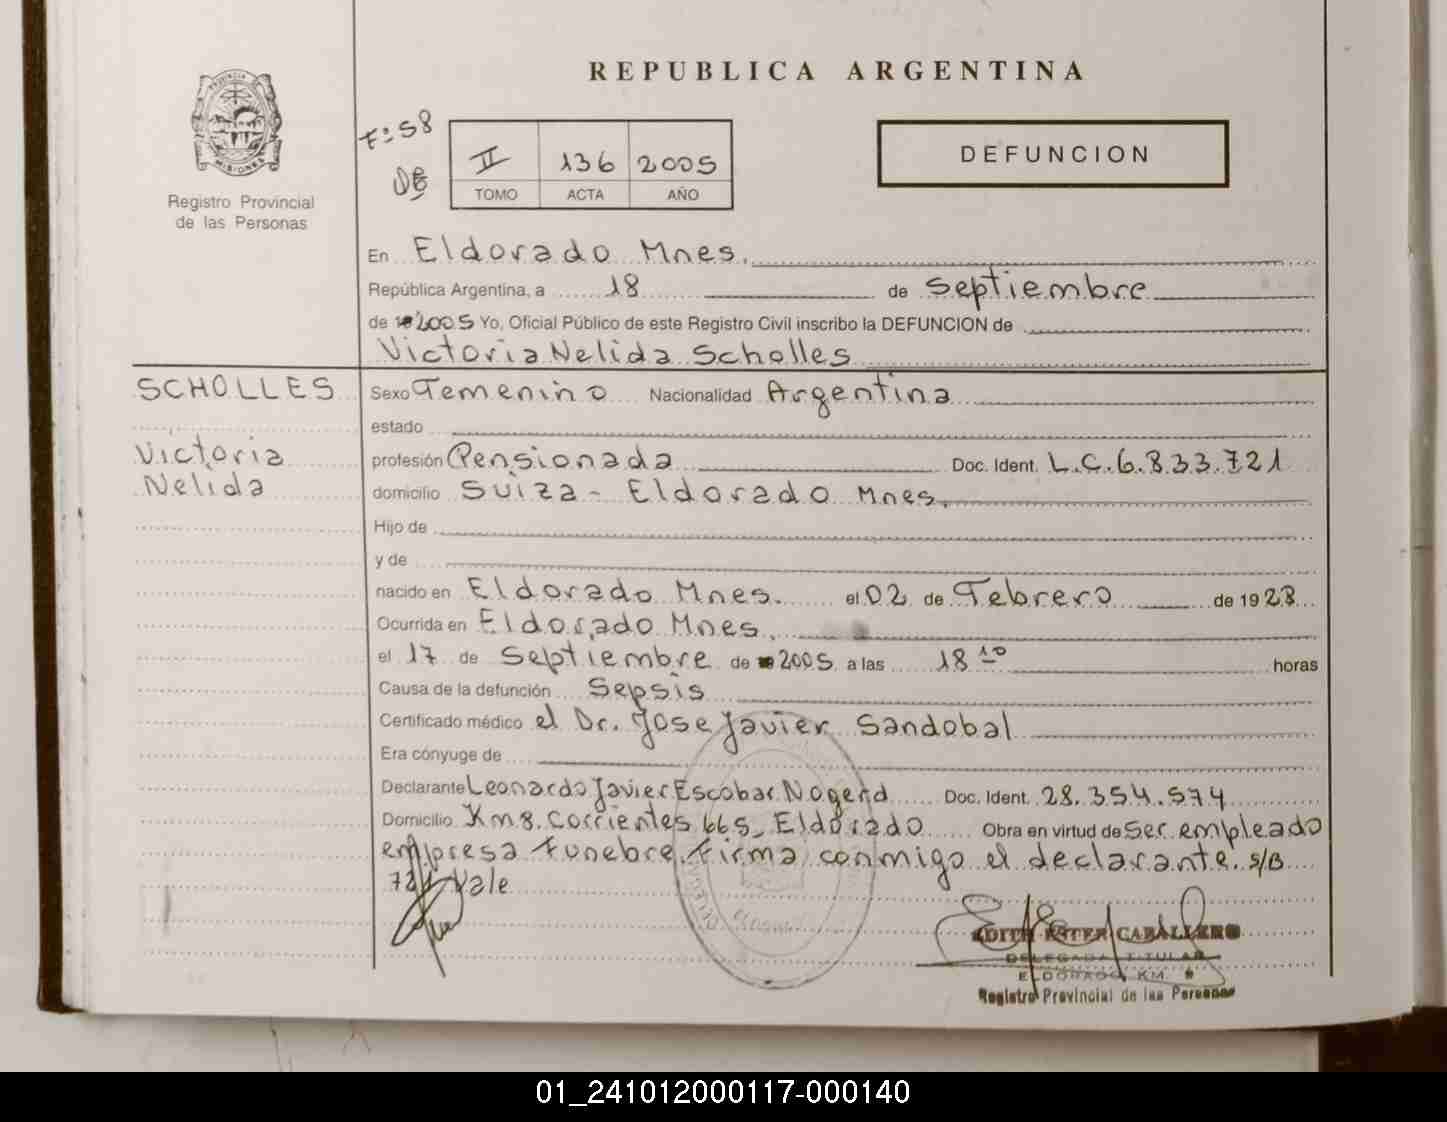 REPUBLICA ARGENTINA
Fº 58
II 136 2005
TOMO ACTA AÑO
DEFUNCION
Registro Provincial
de las Personas
En Eldorado Mnes.
República Argentina, a 18 de Septiembre
de 2005 Yo, Oficial Público de este Registro Civil inscribo la DEFUNCION de
Victoria Nelida Scholles
SCHOLLES
Victoria
Nelida
Sexo Femenino Nacionalidad Argentina
estado
profesión Pensionada Doc. Ident. L.C.6.833.721
domicilio Suiza - Eldorado Mnes.
Hijo de
y de
nacido en Eldorado Mnes. el 02 de Febrero de 1923
Ocurrida en Eldorado Mnes.
el 17 de Septiembre de 2005 a las 18 10 horas
Causa de la defunción Sepsis
Certificado médico el Dr. Jose Javier Sandobal
Era cónyuge de
Declarante Leonardo Javier Escobar Doc. Ident. 28.354.574
Domicilio Km 8. Corrientes 665_ Eldorado Obra en virtud de Ser empleado
empresa Funebre. Firma conmigo el declarante. s/B
721 Vale
EDITH ESTER CABALLERO
DELEGADA TITULAR
ELDORADO, KM.
Registro Provincial de las Personas
01_241012000117-000140